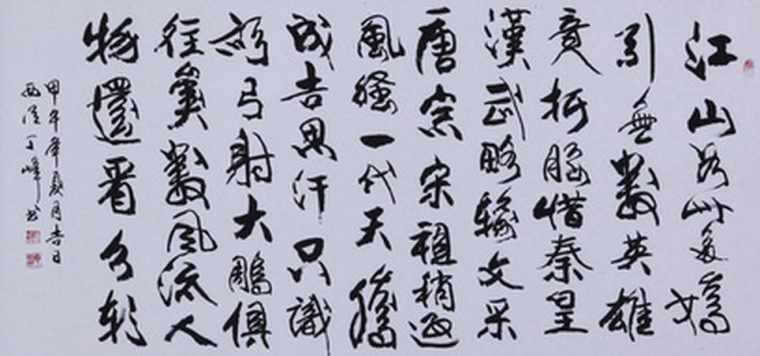 江山如此多嬌
引無數英雄
竟折腰惜秦皇
漢武略輸文采
唐宗宋祖稍遜
風騷一代天驕
成吉思汗只識
彎弓射大鵰俱
往矣數風流人
物還看今朝
甲午年夏月吉日
丁峰书